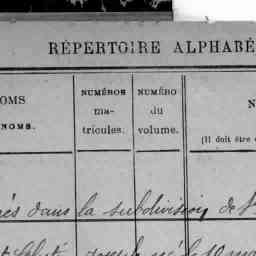 RÉPERTOIRE ALPHABÉ
OMS
NOMS.
NUMÉROS
ma-
tricules.
NUMÉRO
du
volume.
N
(Il doit être
dans la subdivision de